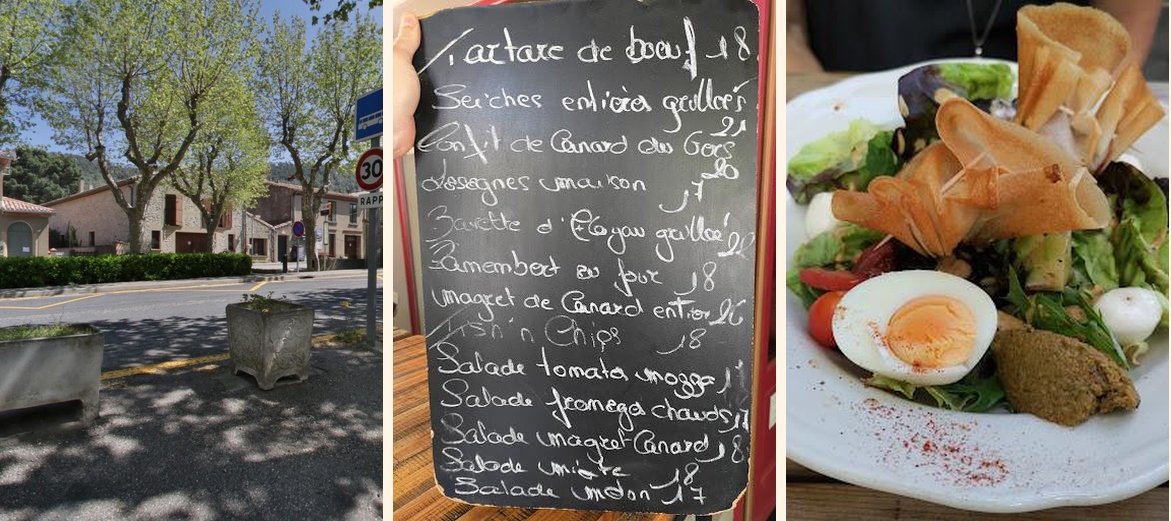 30
RAPP
Tartare de boeuf 18
Seiches entières grillées
21
Confit de Canard du Gers
20
Lasagnes maison 17
Bavette d'Aloyau grillée 22
Camembert au four 18
magret de Canard entier 26
Fish'n Chips 18
Salade tomates mozza
Salade fromages chauds 17
Salade magret Canard 18
Salade mixte 18
Salade melon 17